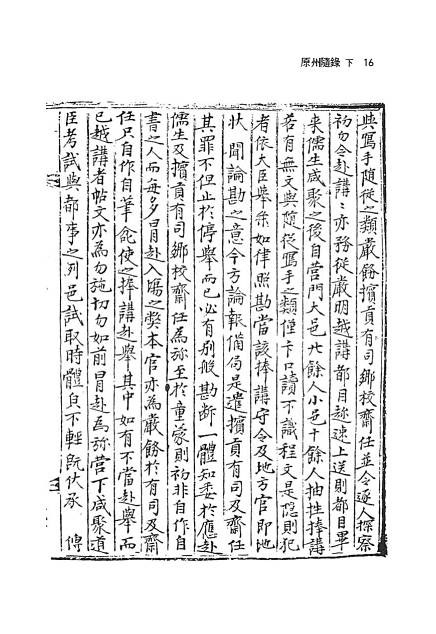 原州隨錄 下 16
與寫手隨從之類嚴飭擯貢有司鄕校齋任並令逐人探察
初勿令赴講〻亦務從嚴明越講都目趂速上送則都目畢
來儒生咸聚之後自營門大邑廿餘人小邑十餘人抽牲捧講
若有無文與隨從寫手之類僅卞只讀不識程文是隱則犯
者依大臣擧条如律照勘當該捧講守令及地方官卽地
狀 聞論勘之意今方論報備局是遣擯貢有司及齋任
其罪不但止於停擧而已必有別般勘斷一體知委於應赴
儒生及擯貢有司鄕校齋任爲旀至於童蒙則初非自作自
書之人而每多冒赴入場之獘本官亦爲嚴飭於有司及齋
任只自作自筆 使之捧講赴擧其中如有不當赴擧而
已越講者帖文亦爲勿施切勿如前冒赴爲旀營下咸聚道
臣考試與都事之列邑試取時體自不輕旣伏承 傳